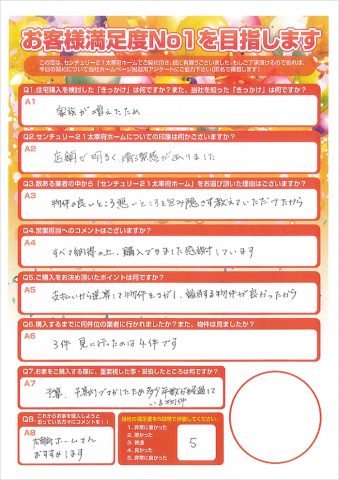 お客様満足度No1を目指します
この度は、センチュリー21太宰府ホームでご契約頂き、誠に有難うございました。もしご了承頂けるのであれば、
今回の契約について当社ホームページ掲載用アンケートにご協力下さい(匿名で掲載します)
Q1.住宅購入を検討した「きっかけ」は何ですか?また、当社を知った「きっかけ」は何ですか?
A1
家族が増えたため
Q2.センチュリー21太宰府ホームについての印象は何かございますか?
A2
店舗が明るく、清潔感がありました
Q3.数ある業者の中から「センチュリー21太宰府ホーム」をお選び頂いた理由はございますか?
A3
物件の良いところ悪いところを包み隠さず教えていただけたから
Q4.営業担当へのコメントはございますか?
A4
すべて納得の上、購入できました感謝しています
Q5.ご購入をお決め頂いたポイントは何ですか?
A5
支払いから逆算して物件をさがし、該当する物件が良かったから
Q6.購入するまでに何件位の業者に行かれましたか?また、物件は見ましたか?
A6
3件 見に行ったのは4件です
Q7.お家をご購入する際に、重要視した事・妥協したところは何ですか?
A7
予算、予算内でさがしたため多少年数が経過して
いる物件
Q8
これからお家を購入しようと
思っている方々にコメントを!!
A8
太宰府ホームさん
おすすめします
当社の満足度を5段階で評価してください。
1. 非常に悪かった
2. 悪かった
3. 普通
4. 良かった
5. 非常に良かった
5